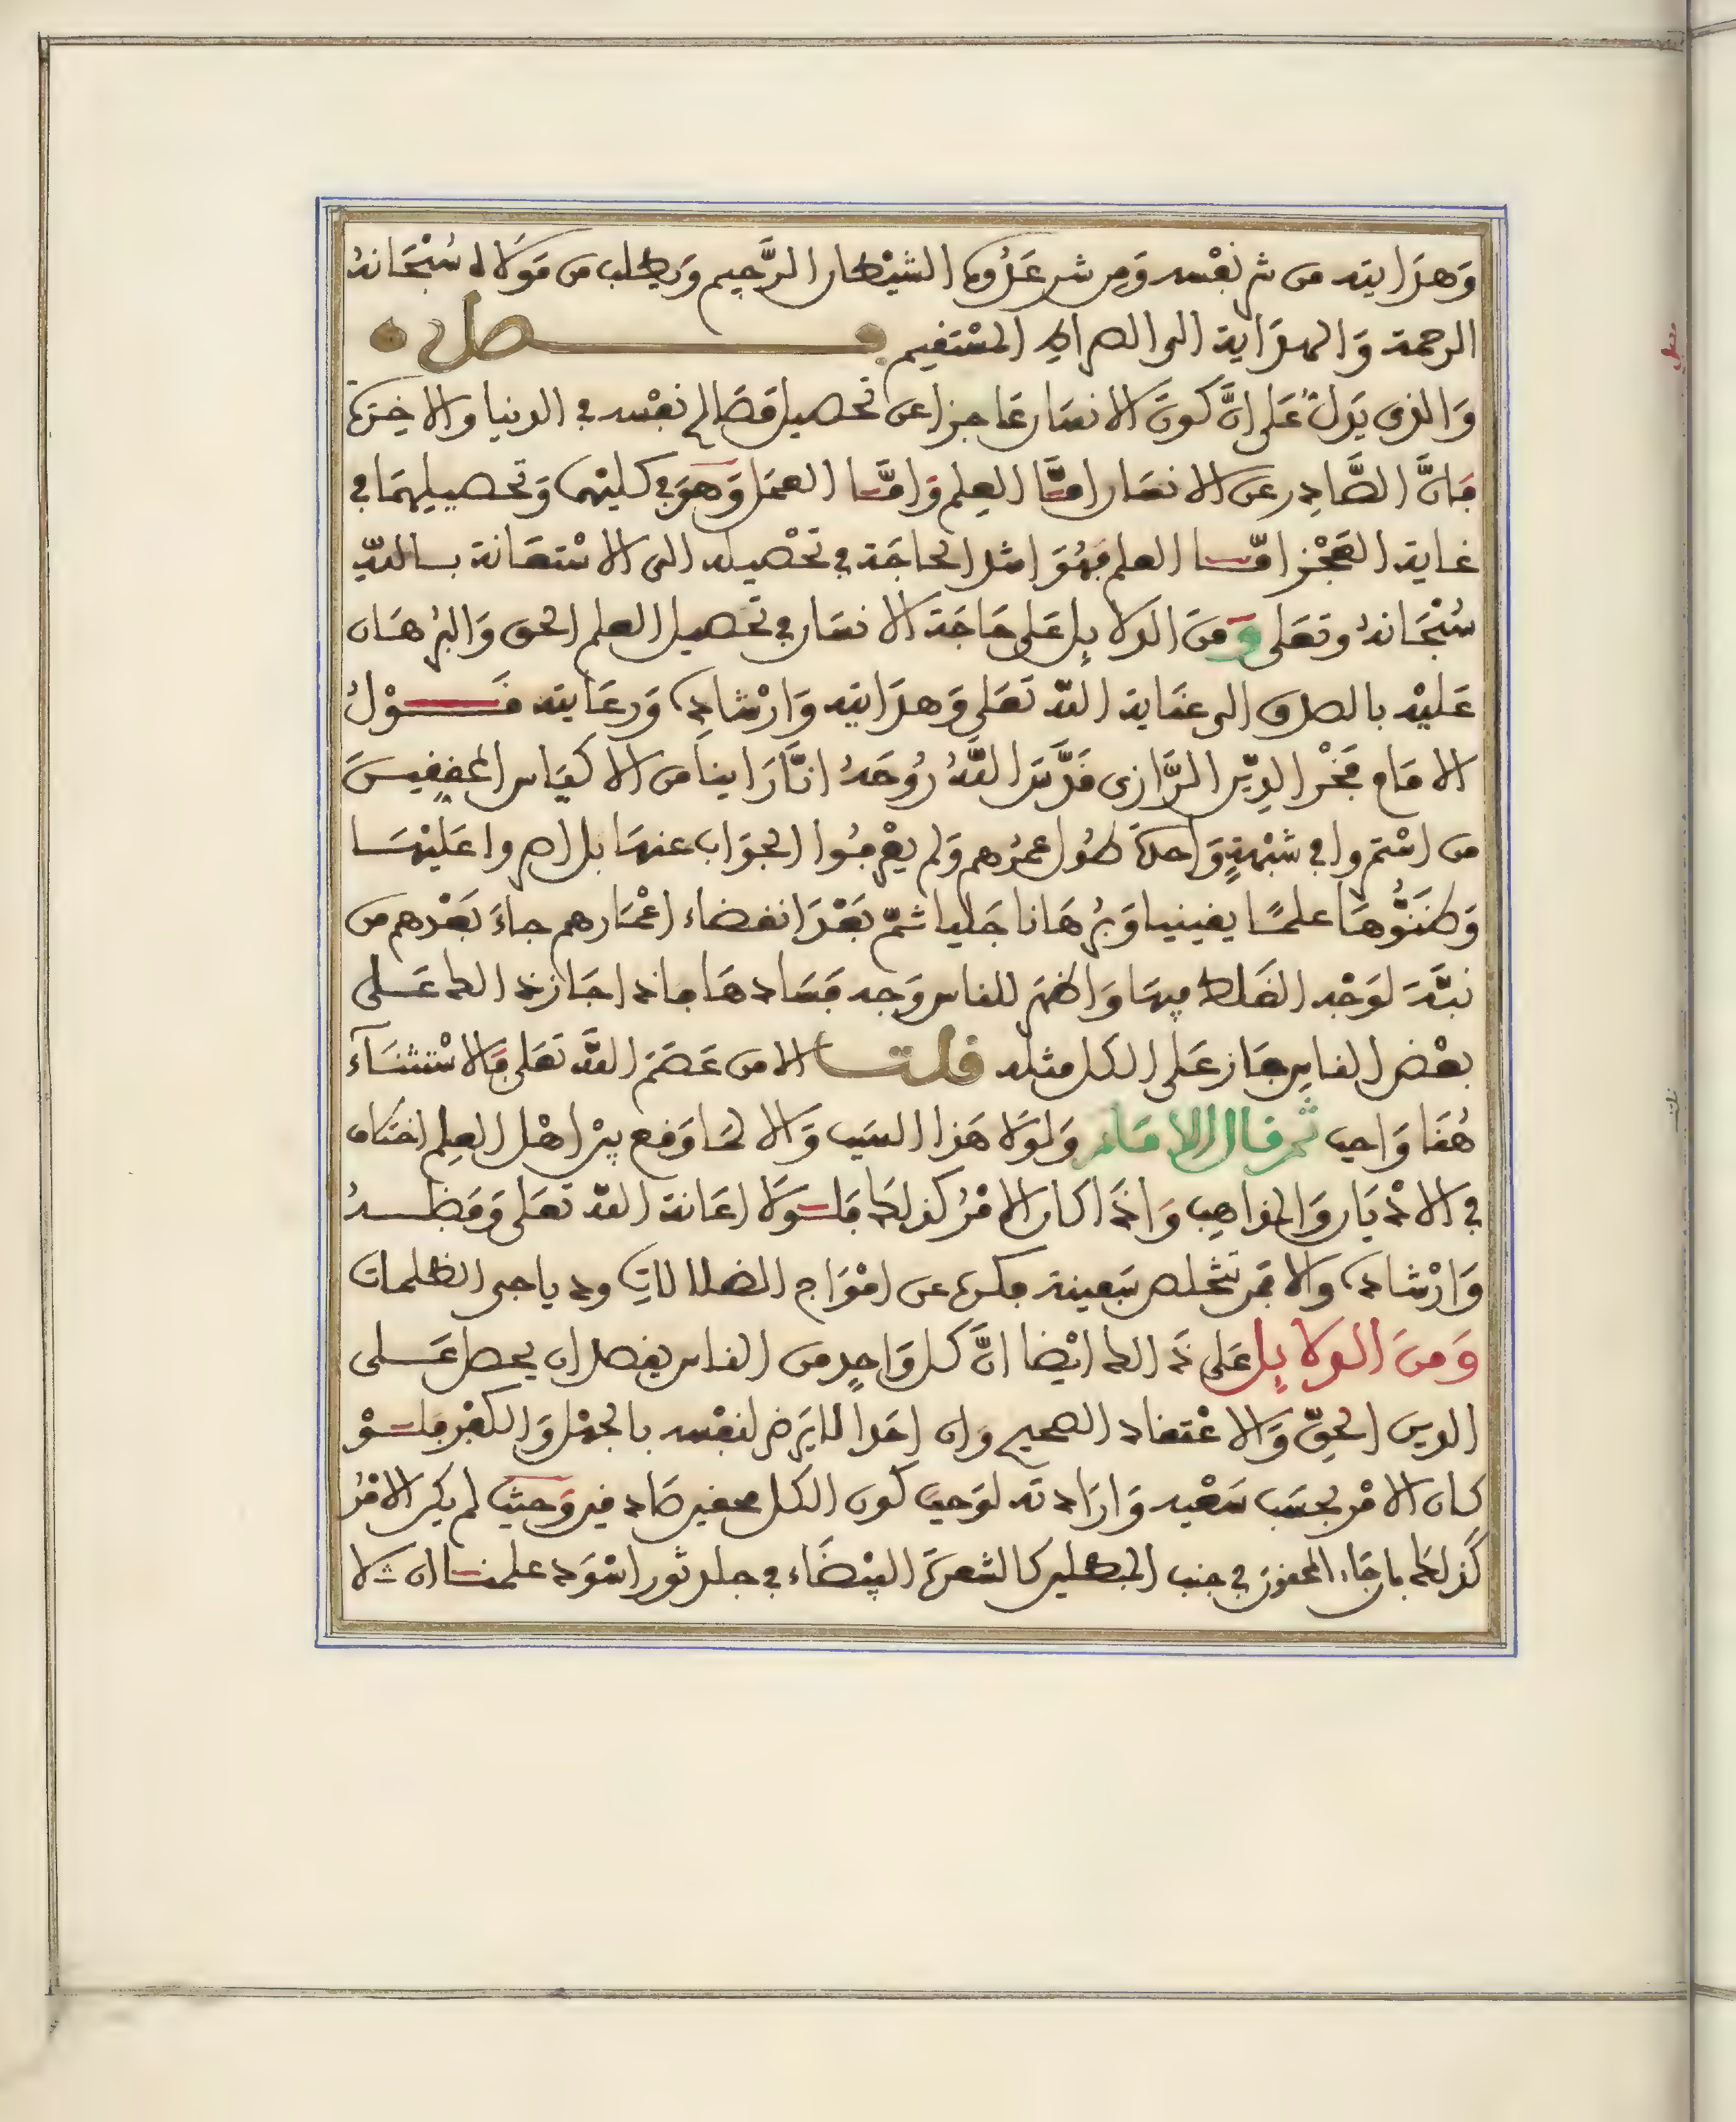 وَهدَايته من شر نفسه وَمِن شر عَدُوه الشيْطان الرَّجِيم وَيطلب من مَوَلاه سُبْحَانهُ
الرحمة وَالهدَاية الى الصراط المسْتقيم فصل
وَالذى يَدلُّ عَلى انَّ كونَ الانسَان عَاجزا عن تحصيل مَصَالح نفسه في الدنيا والاخِرَة
فَانَّ الصَّادِر عن الانسَان امَّا العِلم وَامَّا العمَل وَهوَ في كليْهما وَتحصيلهمَا في
غاية العَجْز امَّا العلم فَهُوَ امثل الحاجَة في تحْصيله الى الاسْتعَانة بالله
سُبْحَانهُ وتعَلى وَمنَ الدلايِل عَلى حَاجَة الانسَان في تحصيل العلم الحق وَالبرْهَان
عَليْه بالصدق الى عنَاية الله تعَلى وَهدَايته وَارْشادِه وَرعَايته قَوْلُ
الامَام فَخْر الدِيّن الرَّازى قَدَّسَ اللهُ رُوحَهُ انَّا رَاينا من الاكيَاس المحقِقِينَ
من اسْتمروا في شبْهةٍ وَاحدَة طُول عمرُهم وَلم يعْرفُوا الجوَاب عنهَا بل اصروا عَليْهَا
وَظننُّوهَا علمًا يقينيا وَبُرهَانا جَليا ثمّ بَعْدَ انقضاء اعْمَارهم جاءَ بَعْدهم من
نبَّهَ لوَجْه الغَلط فيهَا وَاظهَر للناس وَجه فسَادهَا فاذا جَاز ذالك عَلى
بعْض الناسِ جَاز عَلى الكل مثله قلت الا من عَصَمَ اللَّهُ تعَلى فَالاسْتثنَآء
هُنَا وَاجب ثم قال الامام وَلوَلا هَذا السبَب وَالا لمَا وَقع بيْن اهْل العِلم اختلاف
في الادْيَان وَالمذاهِب وَاذَا كان الامْرُ كذلِك فلَوَلا اعَانة الله تعَلى وَفضلهُ
وَارْشاده والا فمَن يتخَلص بسَفينة فكره عن امْوَاج الضلالاتِ ودياجى الظلمات
وَمنَ الدلايِل عَلى ذَالك ايْضا انَّ كل وَاحِدٍ من الناس يقصد ان يحصل عَلى
الدين الحقّ وَالاعْتقاد الصحيح وَان احَدا لا يَرضى لنفسه بالجهْل وَالكفْر فلَوْ
كان الامْر بحسَب سَعْيه وَارَادته لوَجبَ كون الكل محقين صَادقين وَحيْث لم يكن الامْرُ
كذلِك بل جَاء المحقون في جنب المبطلين كالشعرَة البيْضَاء في جلد ثور اسْوَد علمنا ان لا